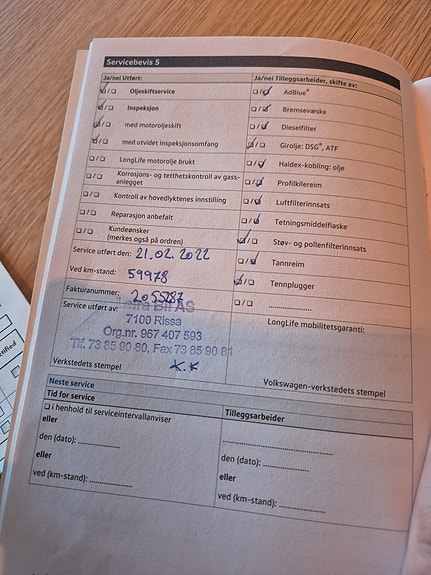 Servicebevis 5
Ja/nei Utført:
Ja/nei Tilleggsarbeider, skifte av:
Oljeskiftservice
AdBlue®
Inspeksjon
Bremsevæske
med motoroljeskift
Dieselfilter
med utvidet inspeksjonsomfang
Girolje: DSG®, ATF
LongLife motorolje brukt
Haldex-kobling: olje
Korrosjons- og tetthetskontroll av gass-
anlegget
Profilkileireim
Kontroll av hovedlyktenes innstilling
Luftfilterinnsats
Reparasjon anbefalt
Tetningsmiddelflaske
Kundeønsker
(merkes også på ordren)
Støv- og pollenfilterinnsats
Service utført den: 21.02.2022
Tannreim
Ved km-stand: 59978
Tennplugger
Fakturanummer: 2055287
Service utført av:
LongLife mobilitetsgaranti:
Leira Bil AS
7100 Rissa
Org.nr. 967 407 593
Tlf. 73 85 90 80, Fax 73 85 90 81
Verkstedets stempel
K.K
Volkswagen-verkstedets stempel
Neste service
Tid for service
Tilleggsarbeider
i henhold til serviceintervallanviser
eller
den (dato): ................
eller
ved (km-stand): ................
................
den (dato): ................
eller
ved (km-stand): ................